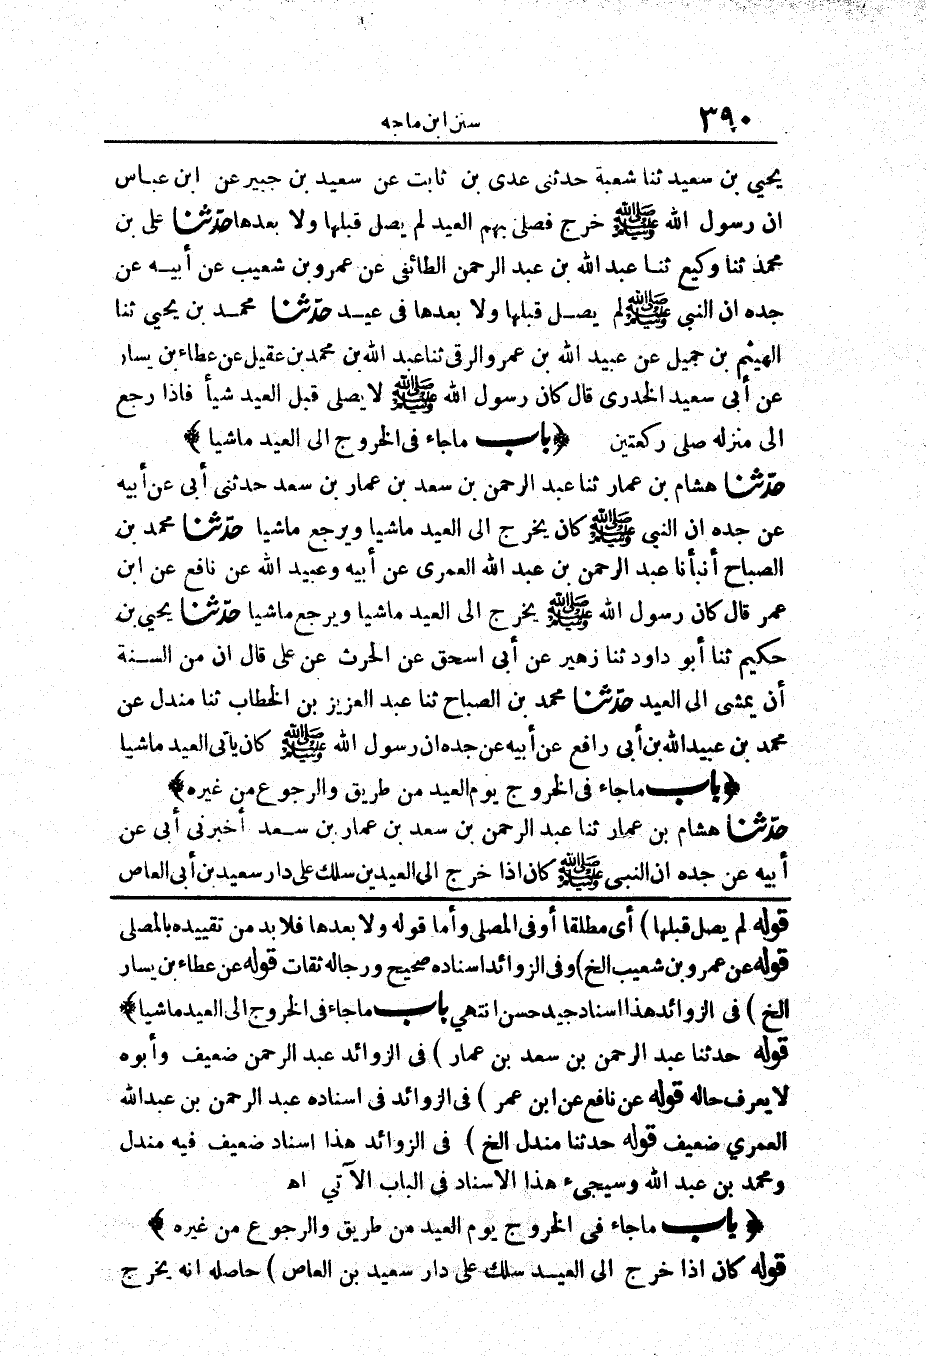 ٣٩٠
سنن ابن ماجه
يحيي بن سعيد ثنا شعبة حدثنى عدى بن ثابت عن سعيد بن جبير عن ابن عباس
ان رسول الله ﷺ خرج فصلى بهم العيد لم يصل قبلها ولا بعدها حدّثنا على بن
محمد ثنا وكيع ثنا عبد الله بن عبد الرحمن الطائفى عن عمرو بن شعيب عن أبيه عن
جده ان النبي ﷺ لم يصل قبلها ولا بعدها فى عيد حدّثنا محمد بن يحيي ثنا
الهيثم بن جميل عن عبيد الله بن عمرو الرقى ثنا عبد الله بن محمد بن عقيل عن عطاء بن يسار
عن أبى سعيد الخدرى قال كان رسول الله ﷺ لا يصلى قبل العيد شيأ فاذا رجع
الى منزله صلى ركعتين ﴿باب ماجاء فى الخروج الى العيد ماشيا﴾
حدّثنا هشام بن عمار ثنا عبد الرحمن بن سعد بن عمار بن سعد حدثنى أبى عن أبيه
عن جده ان النبى ﷺ كان يخرج الى العيد ماشيا ويرجع ماشيا حدّثنا محمد بن
الصباح أنبأنا عبد الرحمن بن عبد الله العمرى عن أبيه وعبيد الله عن نافع عن ابن
عمر قال كان رسول الله ﷺ يخرج الى العيد ماشيا ويرجع ماشيا حدّثنا يحيي بن
حكيم ثنا أبو داود ثنا زهير عن أبى اسحق عن الحرث عن على قال ان من السنة
أن يمشى الى العيد حدّثنا محمد بن الصباح ثنا عبد العزيز بن الخطاب ثنا مندل عن
محمد بن عبيد الله بن أبى رافع عن أبيه عن جده ان رسول الله ﷺ كان ياتى العيد ماشيا
﴿باب ماجاء فى الخروج يوم العيد من طريق والرجوع من غيره﴾
حدّثنا هشام بن عمار ثنا عبد الرحمن بن سعد بن عمار بن سعد أخبرنى أبى عن
أبيه عن جده ان النبى ﷺ كان اذا خرج الى العيدين سلك على دار سعيد بن أبى العاص
قوله لم يصل قبلها) أى مطلقا أو فى المصلى وأما قوله ولا بعدها فلا بد من تقييده بالمصلى
قوله عن عمرو بن شعيب الخ) وفى الزوائد اسناده صحيح ورجاله ثقات قوله عن عطاء بن يسار
الخ) فى الزوائد هذا اسناد جيد حسن انتهي باب ماجاء فى الخروج الى العيد ماشيا﴾
قوله حدثنا عبد الرحمن بن سعد بن عمار) فى الزوائد عبد الرحمن ضعيف وأبوه
لا يعرف حاله قوله عن نافع عن ابن عمر) فى الزوائد فى اسناده عبد الرحمن بن عبدالله
العمري ضعيف قوله حدثنا مندل الخ) فى الزوائد هذا اسناد ضعيف فيه مندل
ومحمد بن عبد الله وسيجىء هذا الاسناد فى الباب الآتي اه
﴿باب ماجاء فى الخروج يوم العيد من طريق والرجوع من غيره﴾
قوله كان اذا خرج الى العيد سلك على دار سعيد بن العاص) حاصله انه يخرج